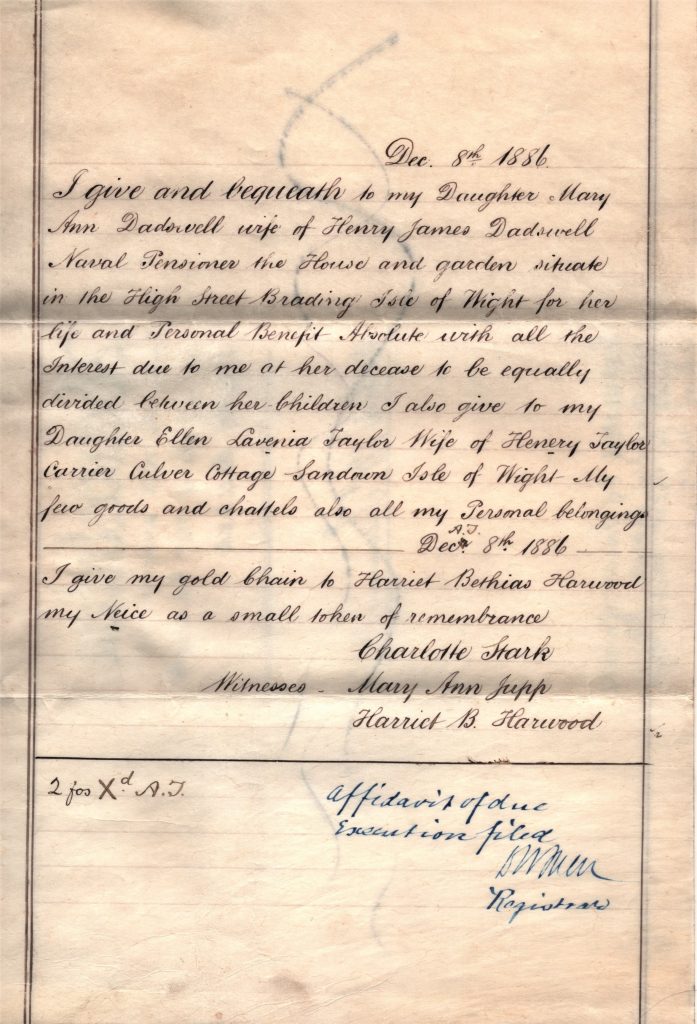 Dec. 8th 1886.
I give and bequeath to my Daughter Mary
Ann Dadswell wife of Henry James Dadswell
Naval Pensioner the House and garden situate
in the High Street Brading Isle of Wight for her
life and Personal Benefit Absolute with all the
Interest due to me at her decease to be equally
divided between her Children I also give to my
Daughter Ellen Lavenia Taylor Wife of Henery Taylor
Carrier Culver Cottage Sandown Isle of Wight My
few goods and chattels also all my Personal belongings
A.T.
Decr 8th 1886
I give my gold Chain to Harriet Bethias Harwood
my Neice as a small token of remembrance
Charlotte Stark
Witnesses - Mary Ann Jupp
Harriet B. Harwood
2 fos Xd A.T.
Affidavit of due
Execution filed
Registrar